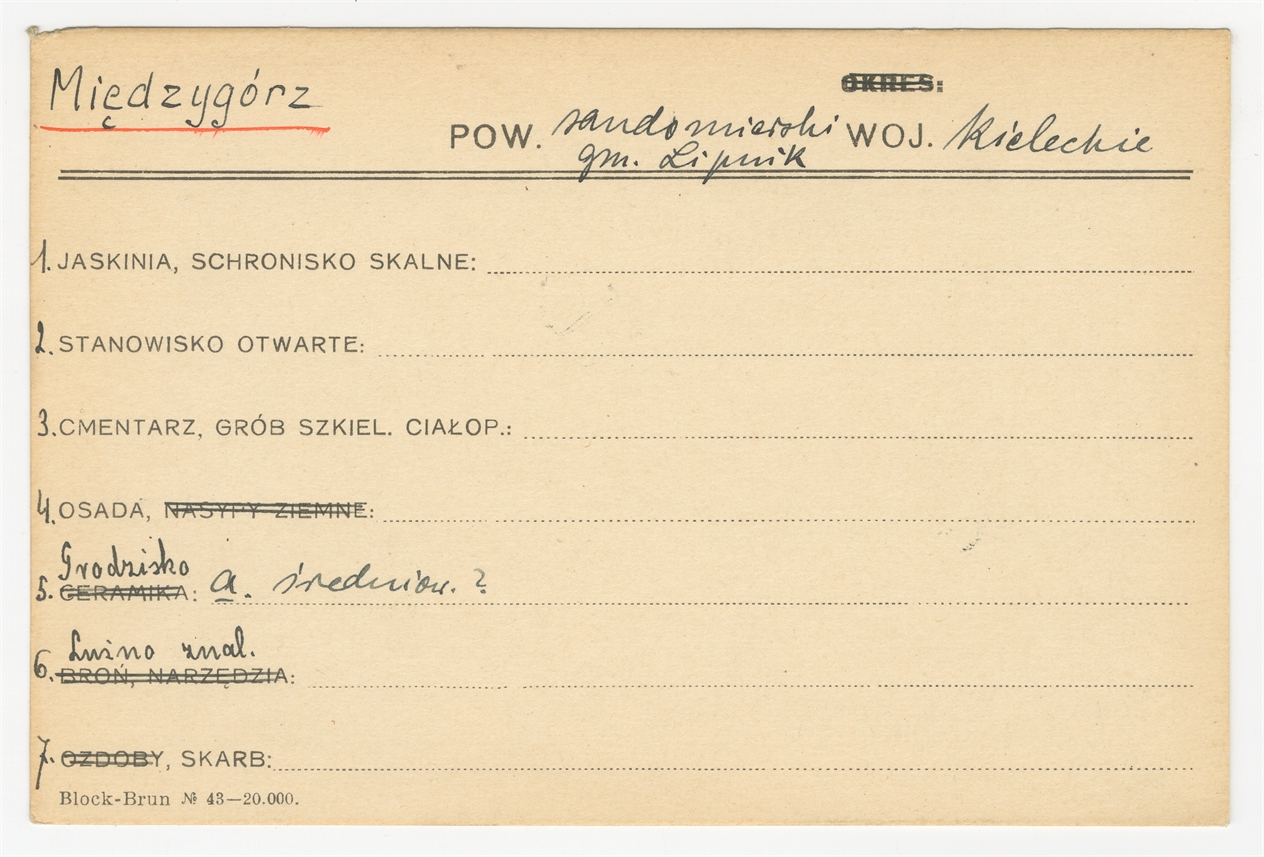 Międzygórz
OKRES:
POW. sandomierski WOJ. kieleckie
gm. Lipnik
1. JASKINIA, SCHRONISKO SKALNE:
2. STANOWISKO OTWARTE:
3. CMENTARZ, GRÓB SZKIEL. CIAŁOP.:
4. OSADA, NASYPY ZIEMNE:
Grodzisko
5. CERAMIKA: a. średniow. ?
Luźno znal.
6. BROŃ, NARZĘDZIA:
7. OZDOBY, SKARB:
Block-Brun № 43—20.000.